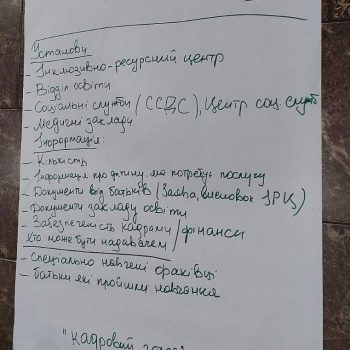 Установи:
- Інклюзивно-ресурсний центр
- Відділ освіти
- Соціальні служби (ССДС), Центр соц служб
- Медичні заклади
Інформація:
- Кількість
- Інформація про дитину, яка потребує послугу
- Документи від батьків (Заява, висновок ІРЦ)
- Документи закладу освіти
- Забезпеченість кадрами/фінанси
Хто може бути надавачем
- спеціально навчені фахівці
- батьки які пройшли навчання
"Кадровий